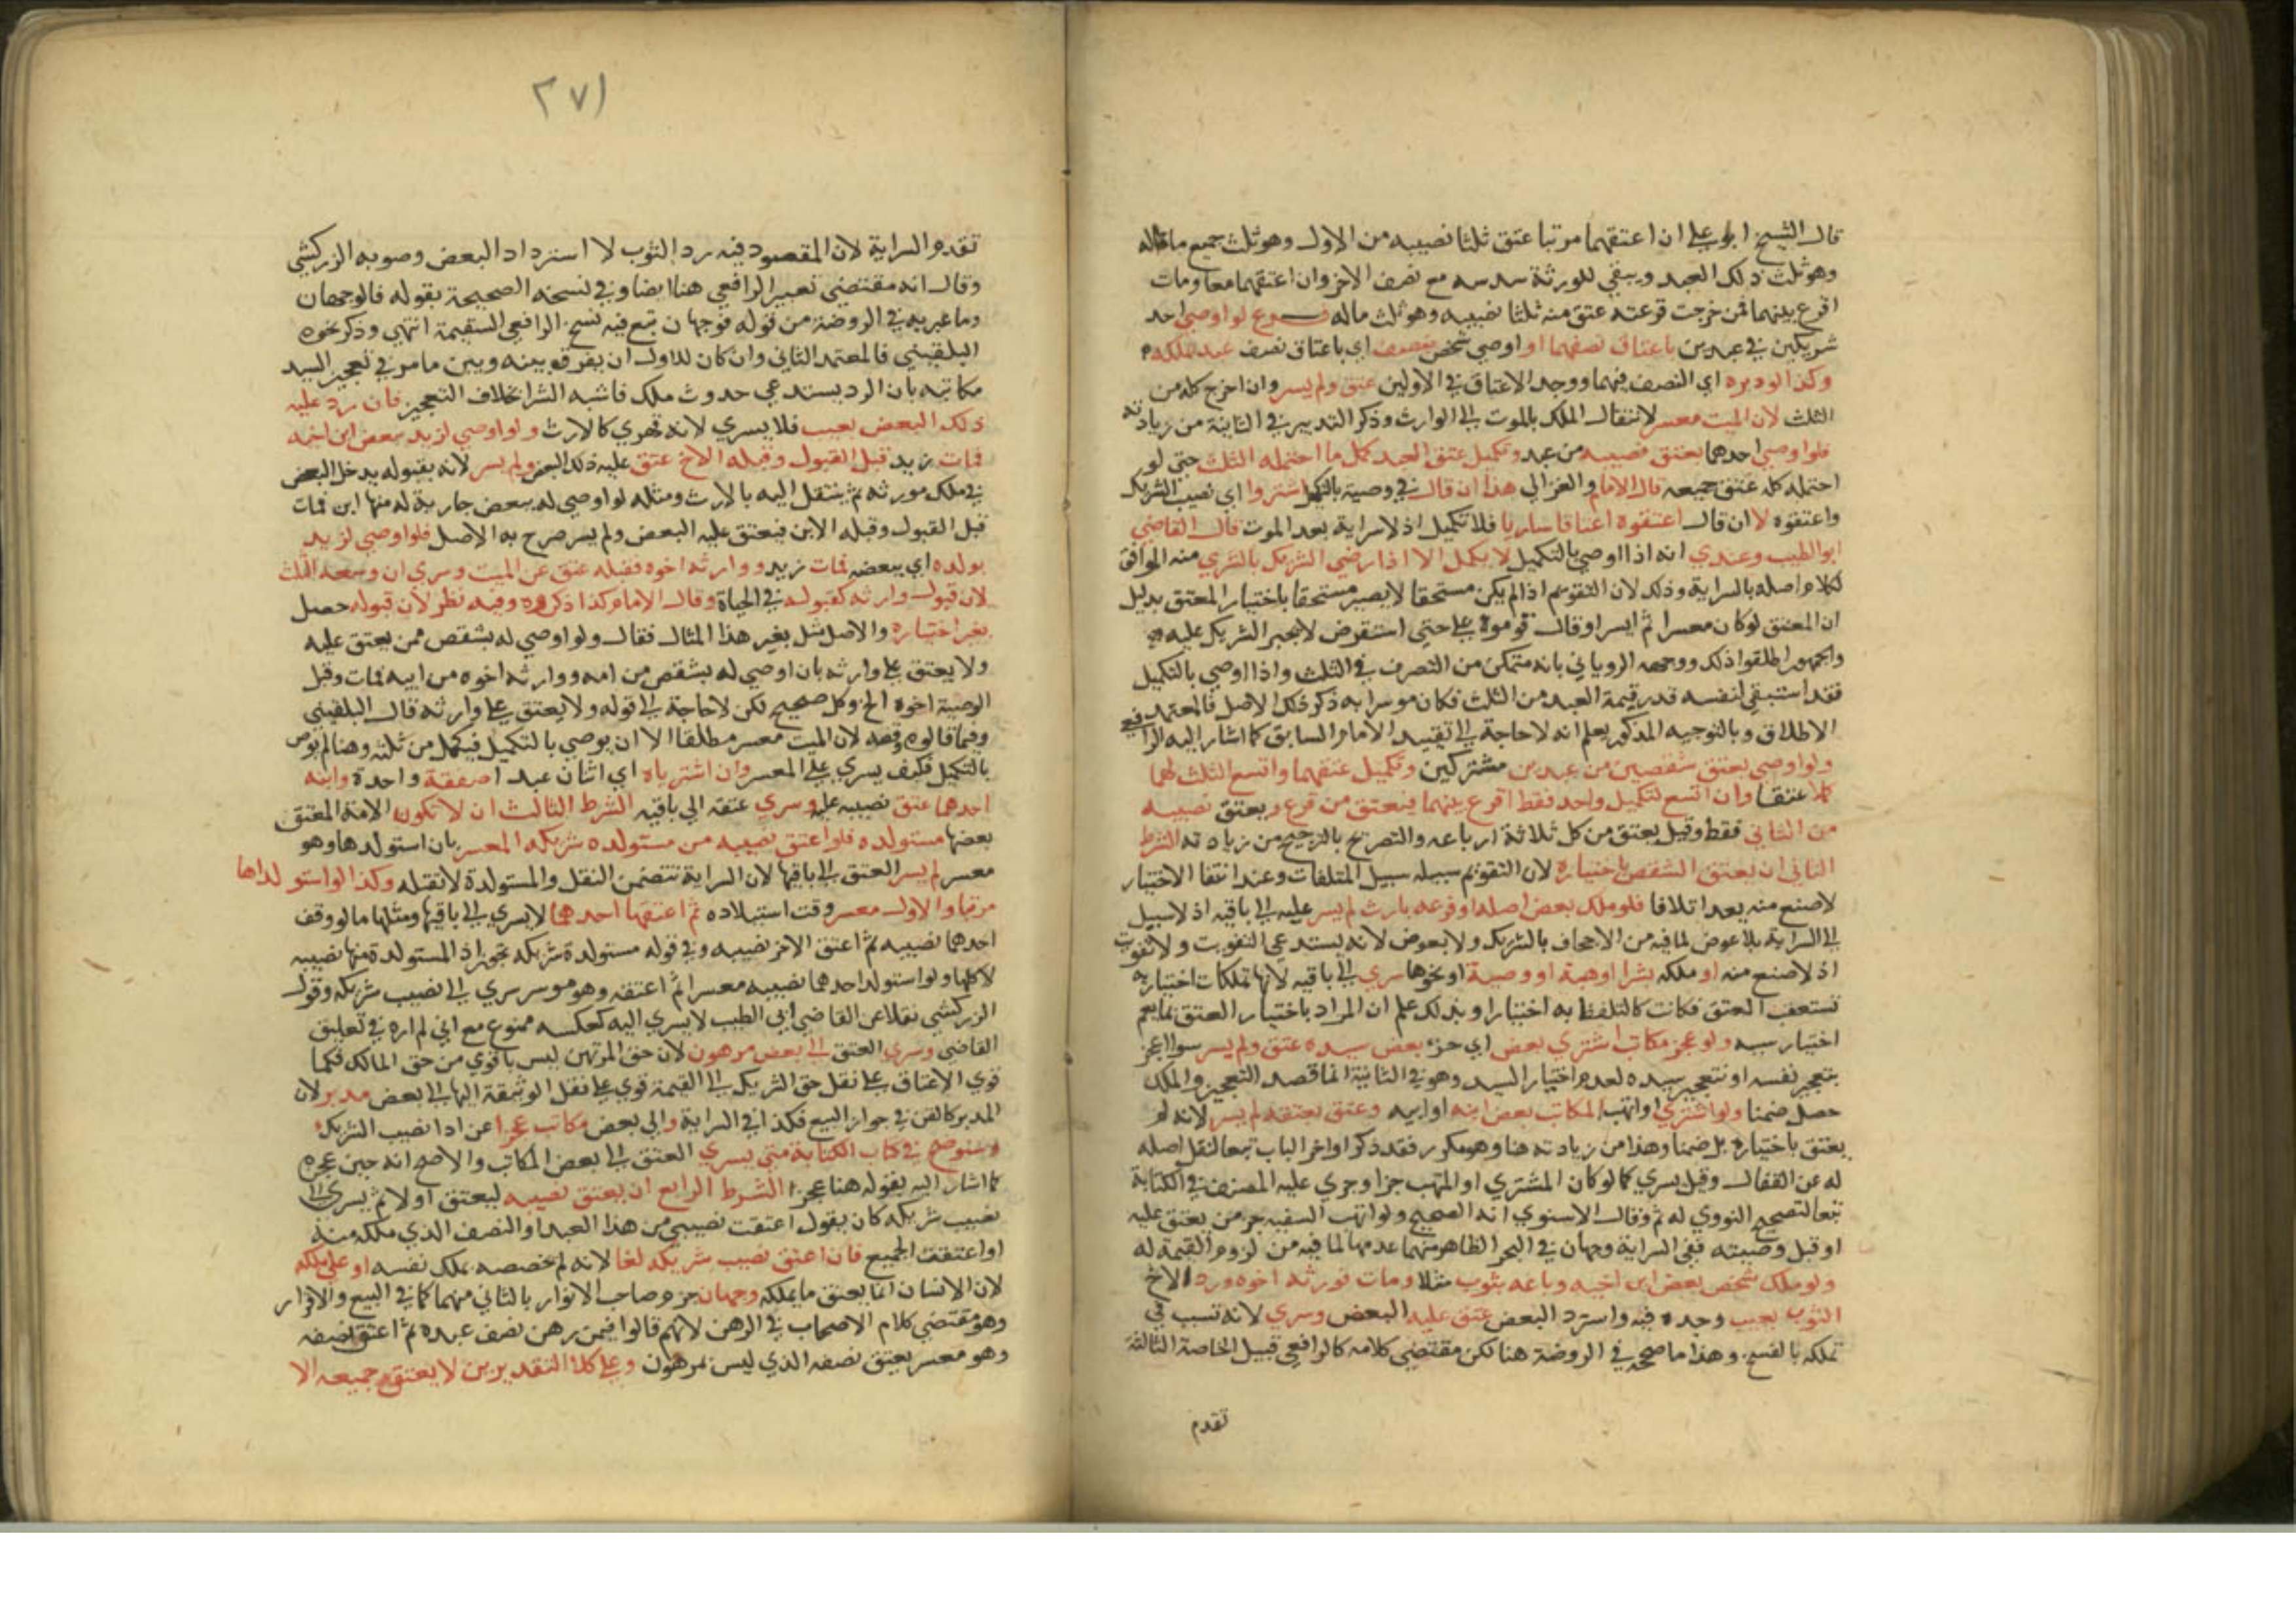 قال الشيخ ابو علي ان اعتقهما مرتبا عتق ثلثا نصيبه من الاول وهو ثلث جميع ماله
وهو ثلث ذلك العبد ويبقي للورثة سدسه مع نصف الاخر وان اعتقهما معا ومات
اقرع بينهما فمن خرجت قرعته عتق منه ثلثا نصيبه وهو ثلث ماله فـــرع لو اوصي احد
شريكين في عبدين باعتاق نصفهما او اوصي شخص بنصف اي باعتاق نصف عبد يملكه
وكذا لو دبره اي النصف فيهما ووجد الاعتاق في الاولين عتق ولم يسر وان اخرج كله من
الثلث لان الميت معسر لانتقال الملك بالموت الي الوارث وذكر التدبير في الثانية من زيادته
فلو اوصي احدهما بعتق نصيبه من عبد وتكميل عتق العبد كمل ما احتمله الثلث حتي لو
احتمله كله عتق جميعه قال الامام والغزالي هذا ان قال في وصية بالتكميل اشتروا اي نصيب الشريك
واعتقوه لا ان قال اعتقوه اعتاقا ساريا فلا تكميل اذ لا سراية بعد الموت قال القاضي
ابو الطيب وعندي انه اذا اوصي بالتكميل لا يكمل الا اذا رضي الشريك بالشري منه الموافق
لكلام اصله بالسراية وذلك لان التقويم اذا لم يكن مستحقا لا يصير مستحقا باختيار المعتق بدليل
ان المعتق لو كان معسرا ثم ايسر او قال قوموه علي حتي استقرض لا يجبر الشريك عليه
والجمهور اطلقوا ذلك ووجهه الروياني بانه متمكن من التصرف في الثلث واذا اوصي بالتكميل
فقد استبقي لنفسه قدر قيمة العبد من الثلث فكان موسرا به ذكر ذلك الاصل فالمعتمد
الاطلاق وبالتوجيه المذكور يعلم انه لا حاجة الي تقييد الامام السابق كما اشار اليه الرافعي
ولو اوصي بعتق شقصين من عبدين مشتركين وتكميل عتقهما واتسع الثلث لهما
كملا عتقا وان اتسع لتكميل واحد فقط اقرع بينهما فيعتق من قرع ويعتق نصيبه
من الثاني فقط وقيل يعتق من كل ثلاثة ارباعه والتصريح بالترجيح من زيادته الشرط
الثاني ان يعتق الشقص باختياره لان التقويم سبيله سبيل المتلفات وعند انتفا الاختيار
لا صنع منه يعد اتلافا فلو ملك بعض اصله او فرعه بارث لم يسر عليه الي باقيه اذ لا سبيل
الي السراية بلا عوض لما فيه من الاجحاف بالشريك ولا بعوض لانه يستدعي التفويت ولا تفويت
اذ لا صنع منه او ملكه بشرا او هبة او وصية او نحوها سري الي باقيه لانها تملكات اختياريه
تستعقب العتق فكانت كالتلفظ به اختيارا وبذلك علم ان المراد باختيار العتق ما يعم
اختيار سببه ولو عجز مكاتب اشتري بعض اي جزء بعض سيده عتق ولم يسر سوا اعجز
بتعجيز نفسه او بتعجيز سيده لعدم اختيار السيد وهو في الثانية انما قصد التعجيز والملك
حصل ضمنا ولو اشتري او اتهب المكاتب بعض ابنه او ابيه وعتق بعتقه لم يسر لانه لم
يعتق باختياره بل ضمنا وهذا من زيادته هنا وهو مكرر فقد ذكر اواخر الباب تبعا لنقل اصله
له عن القفال وقيل يسري كما لو كان المشتري او المتهب جزا وجري عليه المصنف في الكتابة
تبعا لتصحيح النووي له ثم وقال الاسنوي انه الصحيح ولو اتهب السفيه جز من يعتق عليه
او قبل وصيته ففي السراية وجهان في البحر الظاهر منهما عدمها لما فيه من لزوم القيمة له
ولو ملك شخص بعض ابن اخيه وباعه بثوب مثلا ومات فورثه اخوه ورد الاخ
الثوب بعيب وجده فيه واسترد البعض عتق عليه البعض وسري لانه تسبب في
تملكه بالفسخ وهذا ما صححه في الروضة هنا لكن مقتضي كلامه كالرافعي قبيل الخاصة الثالثة
تقدم
٢٧١
تقديم السراية لان المقصود فيه رد الثوب لا استرداد البعض وصوبه الزركشي
وقال انه مقتضي تعبير الرافعي هنا ايضا وفي نسخه الصحيحة بقوله فالوجهان
وما عبر به في الروضة من قوله فوجهان تبع فيه نسخ الرافعي السقيمة انتهي وذكر نحوه
البلقيني فالمعتمد الثاني وان كان للاول ان يفرق بينه وبين ما مر في تعجيز السيد
مكاتبه بان الرد يستدعي حدوث ملك فاشبه الشرا بخلاف التعجيز فان رد عليه
ذلك البعض بعيب فلا يسري لانه قهري كالارث ولو اوصي لزيد ببعض ابن اخيه
فمات زيد قبل القبول وقبله الاخ عتق عليه ذلك البعض ولم يسر لانه بقبوله يدخل البعض
في ملك مورثه ثم ينتقل اليه بالارث ومثله لو اوصي له ببعض جارية له منها ابن فمات
قبل القبول وقبله الابن فيعتق عليه البعض ولم يسر صرح به الاصل فلو اوصي لزيد
بولده اي ببعضه فمات زيد ووارثه اخوه فقبله عتق عن الميت وسري ان وسعه الثلث
لان قبول وارثه كقبوله في الحياة وقال الامام كذا ذكروه وفيه نظر لان قبوله حصل
بغير اختياره والاصل مثل بغير هذا المثال فقال ولو اوصي له بشقص ممن يعتق عليه
ولا يعتق علي وارثه بان اوصي له بشقص من امه ووارثه اخوه من ابيه فمات وقبل
الوصية اخوه الخ وكل صحيح لكن لا حاجة الي قوله ولا يعتق علي وارثه قال البلقيني
وفيما قالوه وقفة لان الميت معسر مطلقا الا ان يوصي بالتكميل فيكمل من ثلثه وهنا لم يوص
بالتكميل فكيف يسري علي المعسر وان اشترياه اي اثنان عبدا صفقة واحدة وابنه
احدهما عتق نصيبه عليه وسري عتقه الي باقيه الشرط الثالث ان لا تكون الامة المعتق
بعضها مستولدة فلو اعتق نصيبه من مستولدة شريكه المعسر بان استولدها وهو
معسر لم يسر العتق الي باقيها لان السراية تتضمن النقل والمستولدة لا تقبله وكذا لو استولداها
مرتبا والاول معسر وقت استيلاده ثم اعتقها احدهما لا يسري الي باقيها ومثلها ما لو وقف
احدهما نصيبه ثم اعتق الاخر نصيبه وفي قوله مستولدة شريكه تجوز اذ المستولدة منها نصيبه
لا كلها ولو استولد احدهما نصيبه معسرا ثم اعتقه وهو موسر سري الي نصيب شريكه وقول
الزركشي نقلا عن القاضي ابي الطيب لا يسري اليه كعكسه ممنوع مع اني لم اره في تعليق
القاضي وسري العتق الي بعض مرهون لان حق المرتهن ليس باقوي من حق المالك فكما
قوي الاعتاق علي نقل حق الشريك الي القيمة قوي علي نقل الوثيقة اليها والي بعض مدبر لان
المدبر كالقن في جواز البيع فكذا في السراية والي بعض مكاتب عجزا عن ادا نصيب الشريك
وسنوضح في كتاب الكتابة متي يسري العتق الي بعض المكاتب والاصح انه حين عجزه
كما اشار اليه بقوله هنا عجزا الشرط الرابع ان يعتق نصيبه ليعتق اولا ثم يسري الي
نصيب شريكه كان يقول اعتقت نصيبي من هذا العبد او النصف الذي ملكه منه
او اعتقت الجميع فان اعتق نصيب شريكه لغا لانه لم يخصصه بملك نفسه او علي ملكه
لان الانسان انما يعتق ما يملكه وجهان جزم صاحب الانوار بالثاني منهما كما في البيع والاقرار
وهو مقتضي كلام الاصحاب في الرهن لانهم قالوا فيمن رهن نصف عبده ثم اعتق نصفه
وهو معسر يعتق نصفه الذي ليس بمرهون وعلي كلا التقديرين لا يعتق جميعه الا